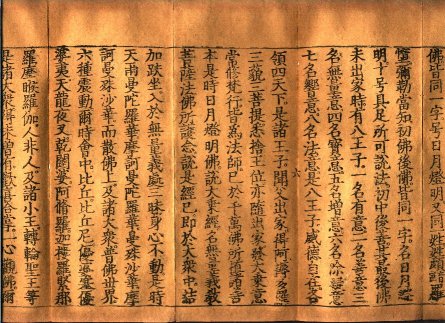 佛皆同一字号日月燈明又同一姓姓頗羅
墮彌勒當知初佛後佛皆同一字名日月燈
明十号具足所可說法初中後善其最後佛
未出家時有八王子一名有意二名善意三
名無量意四名寶意五名增意六名除疑意
七名嚮意八名法意是八王子威德自在各
領四天下是諸王子聞父出家得阿耨多羅
三藐三菩提悉捨王位亦隨出家發大乘意
常修梵行皆為法師已於千萬佛所殖諸善
本是時日月燈明佛說大乘經名無量義教
菩薩法佛所護念說是經已即於大衆中結
加趺坐入於無量義處三昧身心不動是時
天雨曼陀羅華摩訶曼陀羅華曼殊沙華摩
訶曼殊沙華而散佛上及諸大衆普佛世界
六種震動爾時會中比丘比丘尼優婆塞優
婆夷天龍夜叉乾闥婆阿脩羅迦樓羅緊那
羅摩睺羅伽人非人及諸小王轉輪聖王等
是諸大衆得未曾有歡喜合掌一心觀佛爾